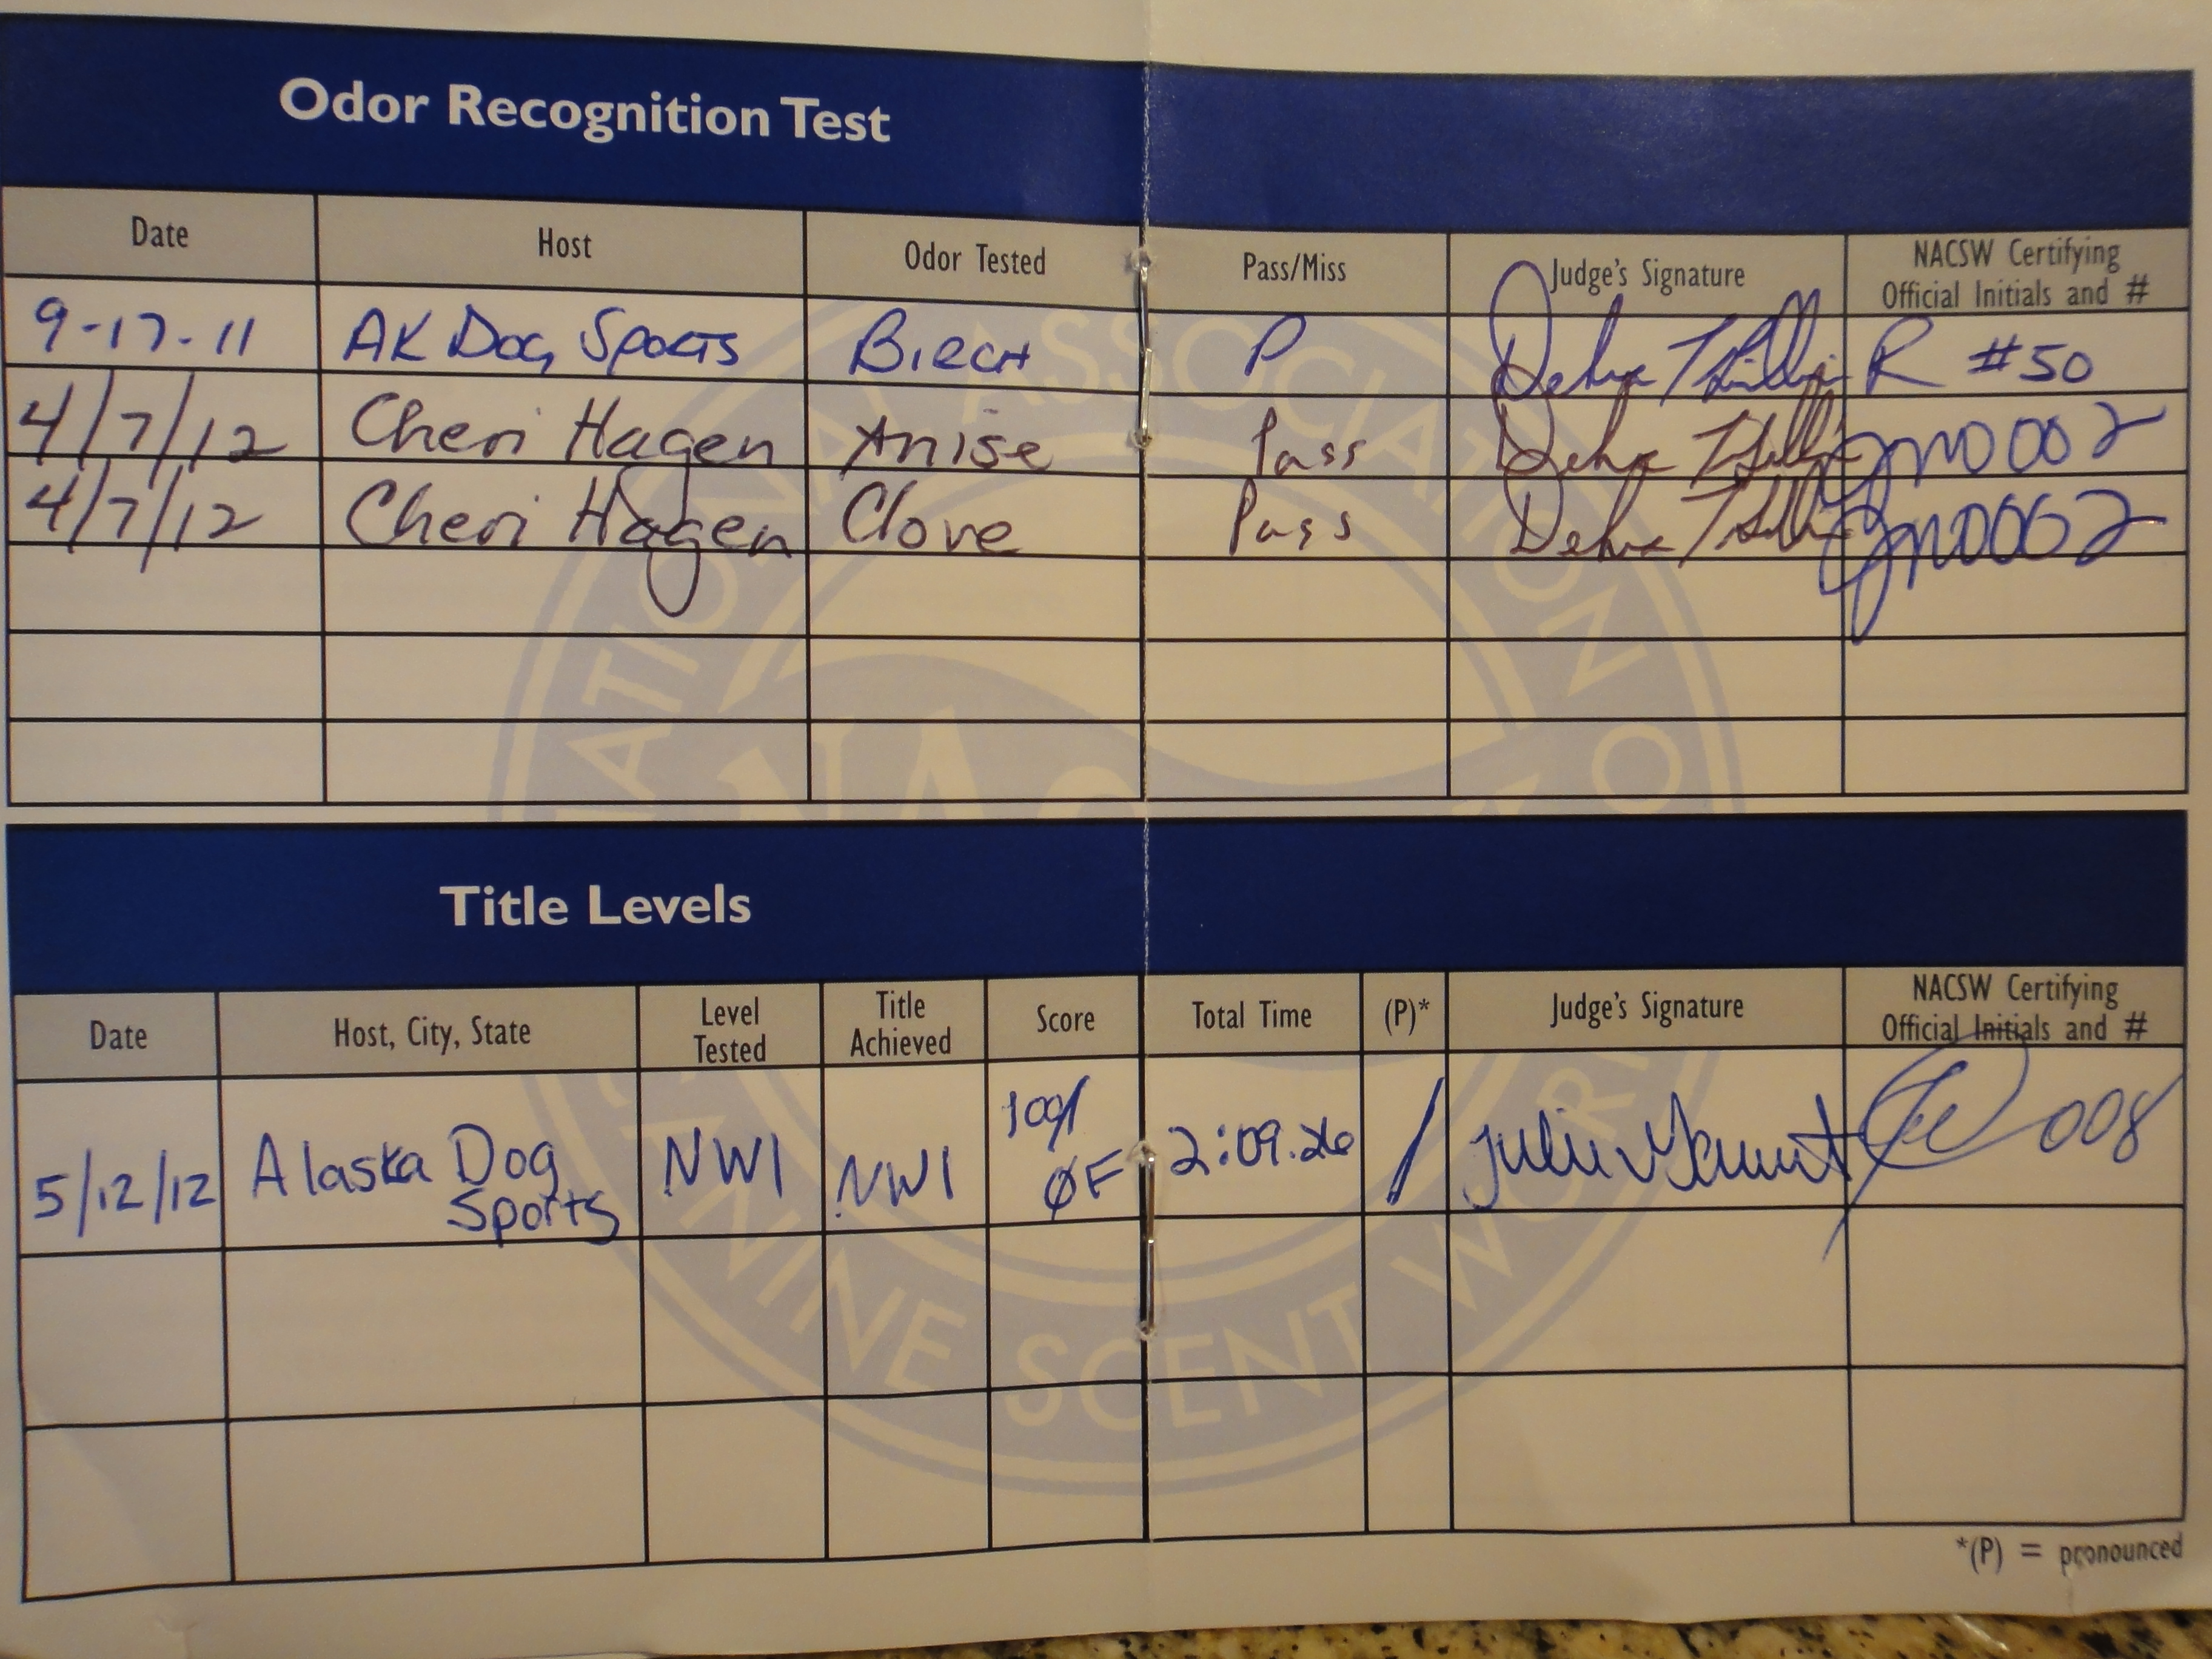 Odor Recognition Test
Date Host Odor Tested Pass/Miss Judge's Signature NACSW Certifying Official Initials and #
9-17-11 AK Dog Sports Birch P R #50
4/7/12 Cheri Hagen Anise Pass 0002
4/7/12 Cheri Hagen Clove Pass 0002
NATIONAL ASSOCIATION OF
Title Levels
Date Host, City, State Level Tested Title Achieved Score Total Time (P)* Judge's Signature NACSW Certifying Official Initials and #
5/12/12 Alaska Dog Sports NW1 NW1 100/ ØF 2:09.26 / Julie 008
CANINE SCENT WORK
*(P) = pronounced